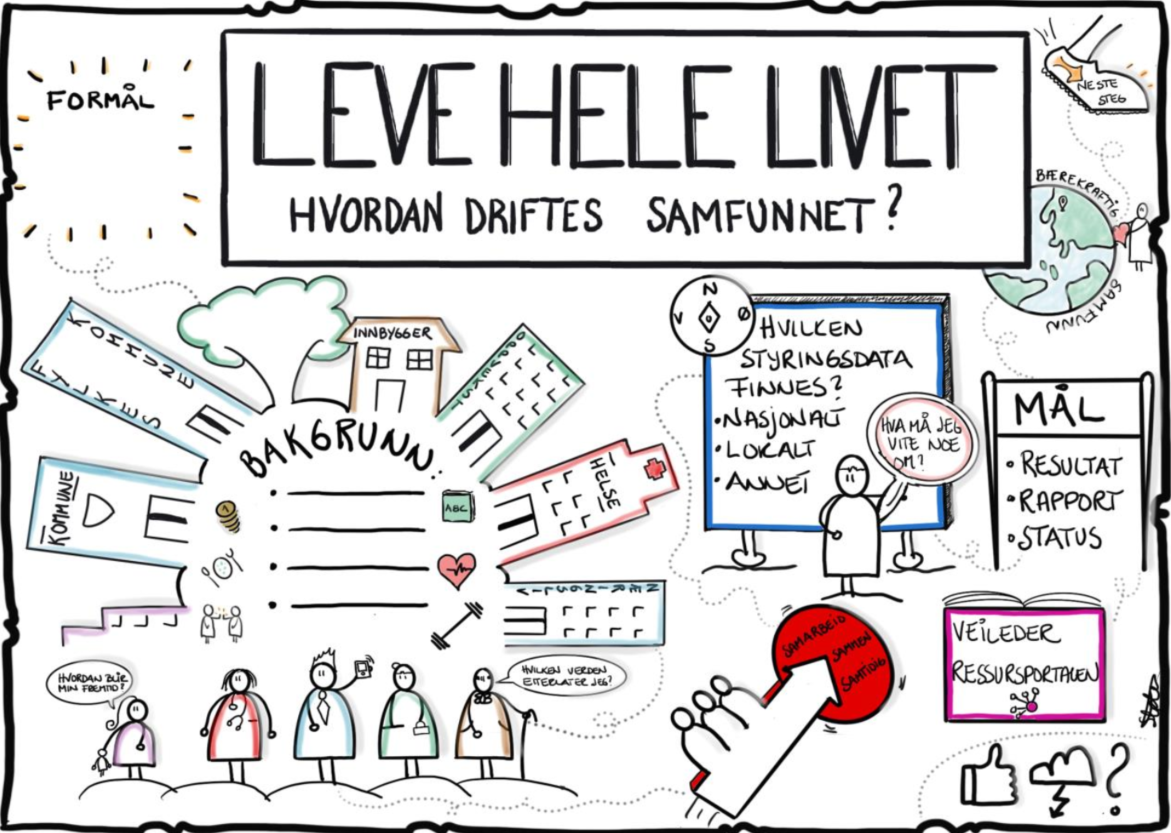 FORMÅL
LEVE HELE LIVET
HVORDAN DRIFTES SAMFUNNET?
NESTE
STEG
BÆREKRAFTIG
SAMFUNN
FYLKES
KOMMUNE
INNBYGGER
OPPVEKST
HELSE
NÆRINGSLIV
KOMMUNE
BAKGRUNN:
1
ABC
N
V Ø
S
HVILKEN
STYRINGSDATA
FINNES?
•NASJONALT
•LOKALT
•ANNET
HVA MÅ JEG
VITE NOE
OM?
MÅL
•RESULTAT
•RAPPORT
•STATUS
HVORDAN BLIR
MIN FREMTID?
HVILKEN VERDEN
ETTERLATER JEG?
SAMARBEID
SAMMEN
SAMTIDIG
VEILEDER
RESSURSPORTALEN
?